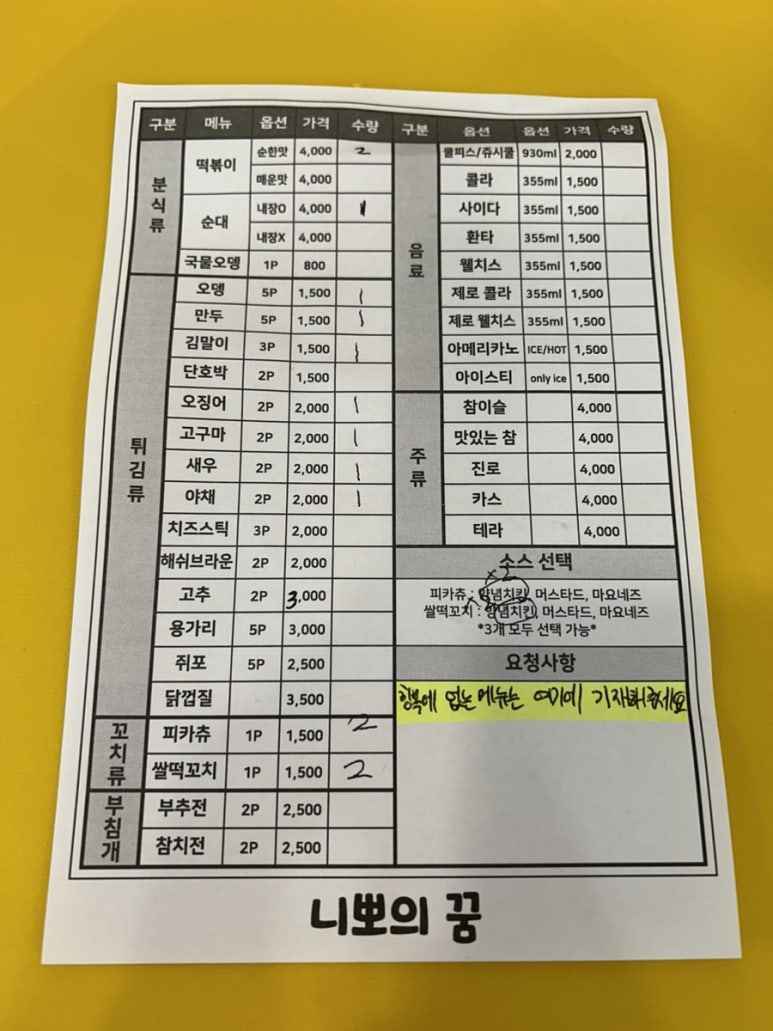 구분 메뉴 옵션 가격 수량
분식류
떡볶이 순한맛 4,000 2
매운맛 4,000
순대 내장O 4,000 1
내장X 4,000
국물오뎅 1P 800
튀김류
오뎅 5P 1,500 1
만두 5P 1,500 1
김말이 3P 1,500 1
단호박 2P 1,500
오징어 2P 2,000 1
고구마 2P 2,000 1
새우 2P 2,000 1
야채 2P 2,000 1
치즈스틱 3P 2,000
해쉬브라운 2P 2,000
고추 2P 3,000
용가리 5P 3,000
쥐포 5P 2,500
닭껍질 3,500
꼬치류
피카츄 1P 1,500 2
쌀떡꼬치 1P 1,500 2
부침개
부추전 2P 2,500
참치전 2P 2,500
구분 옵션 옵션 가격 수량
음료
쿨피스/쥬시쿨 930ml 2,000
콜라 355ml 1,500
사이다 355ml 1,500
환타 355ml 1,500
웰치스 355ml 1,500
제로 콜라 355ml 1,500
제로 웰치스 355ml 1,500
아메리카노 ICE/HOT 1,500
아이스티 only ice 1,500
주류
참이슬 4,000
맛있는 참 4,000
진로 4,000
카스 4,000
테라 4,000
소스 선택
x2
피카츄 : 양념치킨, 머스타드, 마요네즈
쌀떡꼬치 : 양념치킨, 머스타드, 마요네즈
*3개 모두 선택 가능*
요청사항
항목에 없는 메뉴는 여기에 기재해주세요
니뽀의 꿈